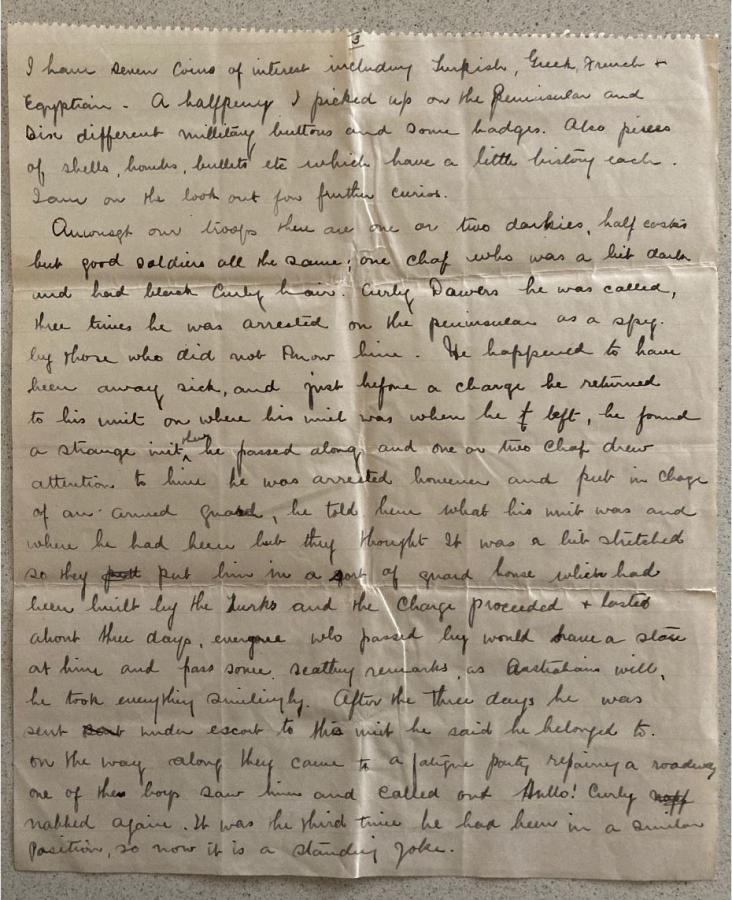 3
I have seven Coins of interest including Turkish, Greek, French +
Egyptian - A halfpenny I picked up on the Peninsular and
six different millitary buttons and some badges. Also pieces
of shells, bombs, bullets etc which have a little history each.
I am on the look out for further curios.
Amongst our troops there are one or two darkies, half castes
but good soldiers all the same; one chap who was a bit dark
and had black Curly hair. Curly Dawers he was called,
three times he was arrested on the peninsular as a spy.
by those who did not know him. He happened to have
been away sick, and just before a charge he returned
to his unit or where his unit was when he left, he found
a strange unit, they he passed along and one or two chap drew
attention to him he was arrested however and put in charge
of an armed guard, he told them what his unit was and
where he had been but they thought It was a bit stretched
so they put him in a sort of guard house which had
been built by the Turks and the Charge proceeded + lasted
about three days, everyone who passed by would have a stare
at him and pass some scathing remarks as Australians will,
he took everything smilingly. After the three days he was
sent under escort to this unit he said he belonged to.
on the way along they came to a fatigue party repairing a roadway
one of the boys saw him and called out Hullo! Curly
nabbed again. It was the third time he had been in a similar
Position, so now it is a standing joke.